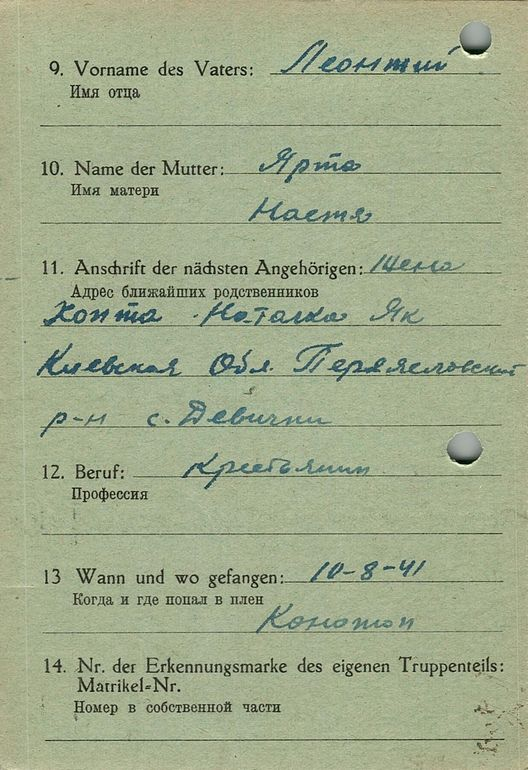 9. Vorname des Vaters: Леонтий
Имя отца
10. Name der Mutter: Ярта
Имя матери
Настя
11. Anschrift der nächsten Angehörigen: Жена
Адрес ближайших родственников
Хопта Наталка Як
Киевская Обл. Переяславский
р-н с. Девички
12. Beruf: Крестьянин
Профессия
13 Wann und wo gefangen: 10-8-41
Когда и где попал в плен
Конотоп
14. Nr. der Erkennungsmarke des eigenen Truppenteils:
Matrikel-Nr.
Номер в собственной части